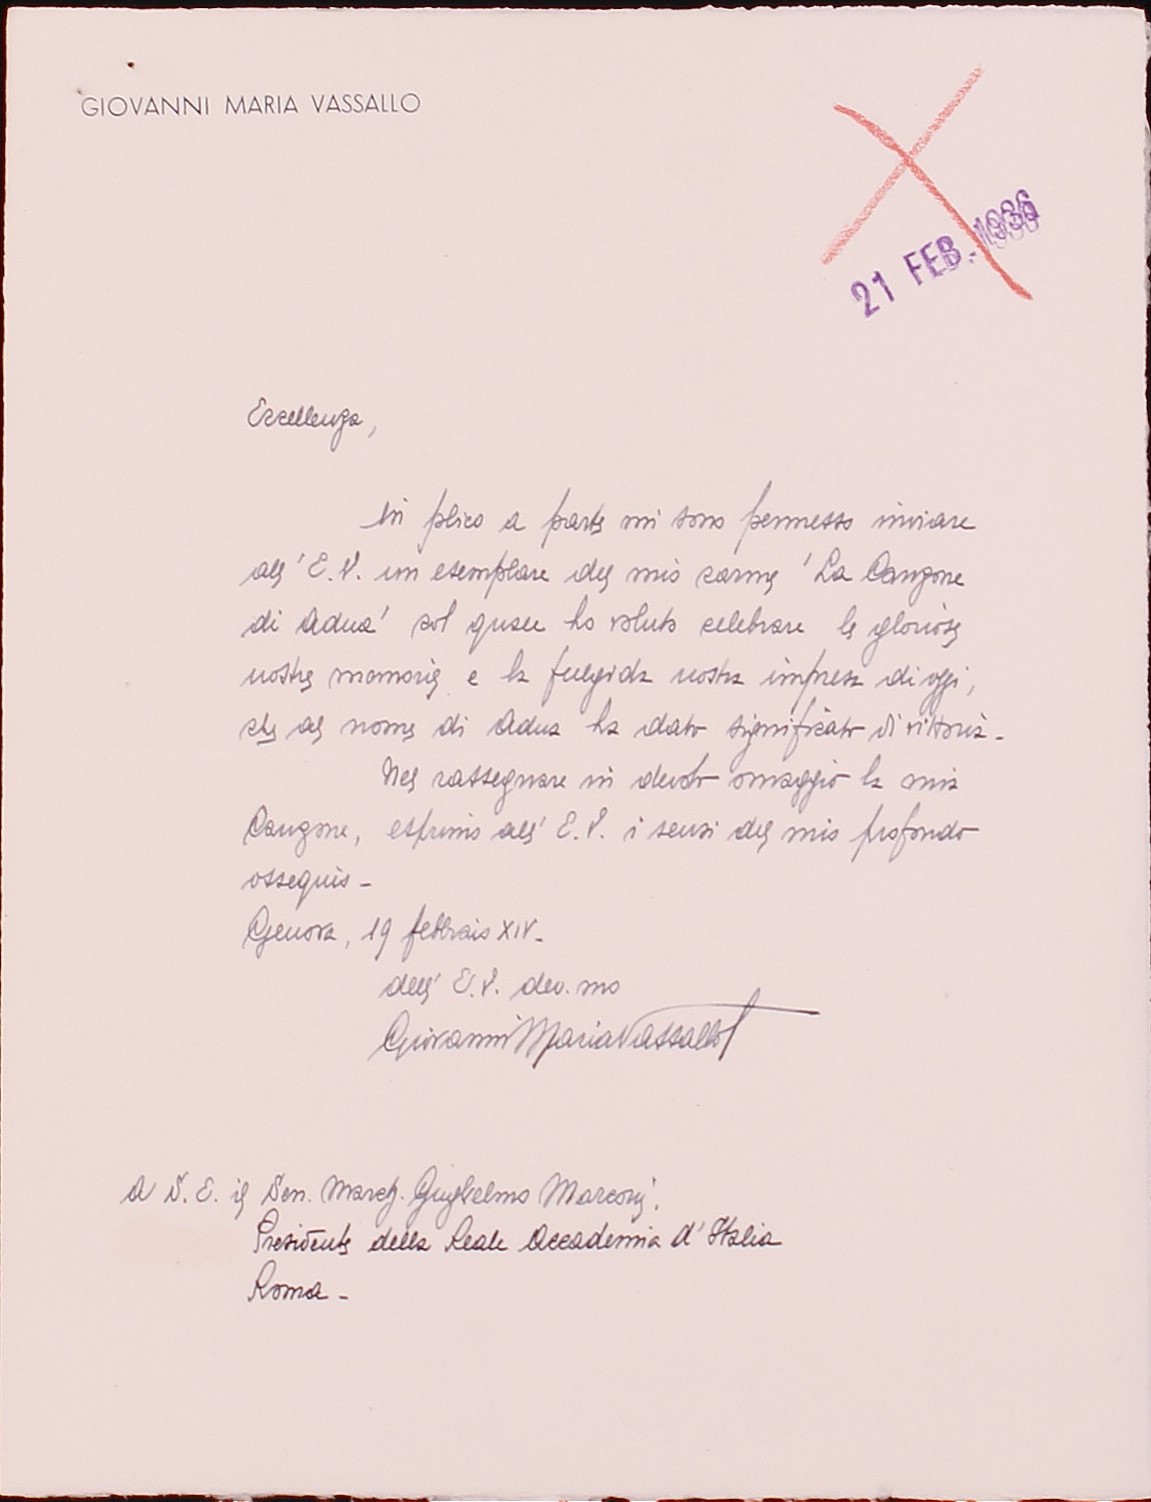 GIOVANNI MARIA VASSALLO
21 FEB. 1936
Eccellenza,
In plico a parte mi sono permesso inviare
all' E. V. un esemplare del mio carme 'La Canzone
di Adua' col quale ho voluto celebrare le gloriose
nostre memorie e la fulgida nostra impresa di oggi,
che al nome di Adua ha dato significato di vittoria -
Nel rassegnare in devoto omaggio la mia
Canzone, esprimo all' E. V. i sensi del mio profondo
ossequio -
Genova, 19 febbraio XIV -
dell' E. V. dev. mo
Giovanni Maria Vassallo
A S. E. il Sen. March. Guglielmo Marconi,
Presidente della Reale Accademia d'Italia
Roma -